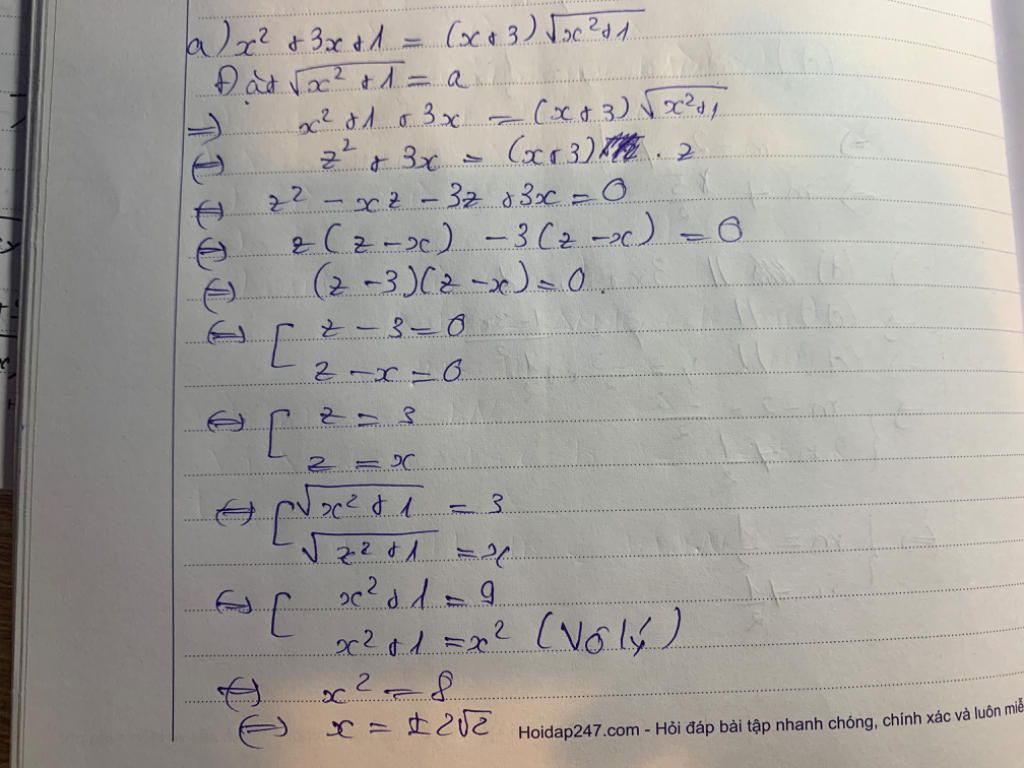 a) x² + 3x + 1 = (x + 3) √(x² + 1)
Đặt √(x² + 1) = a
=> x² + 1 + 3x = (x + 3) √(x² + 1)
<=> z² + 3x = (x + 3) . z
<=> z² - xz - 3z + 3x = 0
<=> z(z - x) - 3(z - x) = 0
<=> (z - 3)(z - x) = 0.
<=> [ z - 3 = 0
z - x = 0
<=> [ z = 3
z = x
<=> [ √(x² + 1) = 3
√(z² + 1) = x
<=> [ x² + 1 = 9
x² + 1 = x² (Vô lý)
<=> x² = 8
<=> x = ± 2√2
Hoidap247.com - Hỏi đáp bài tập nhanh chóng, chính xác và luôn miễ